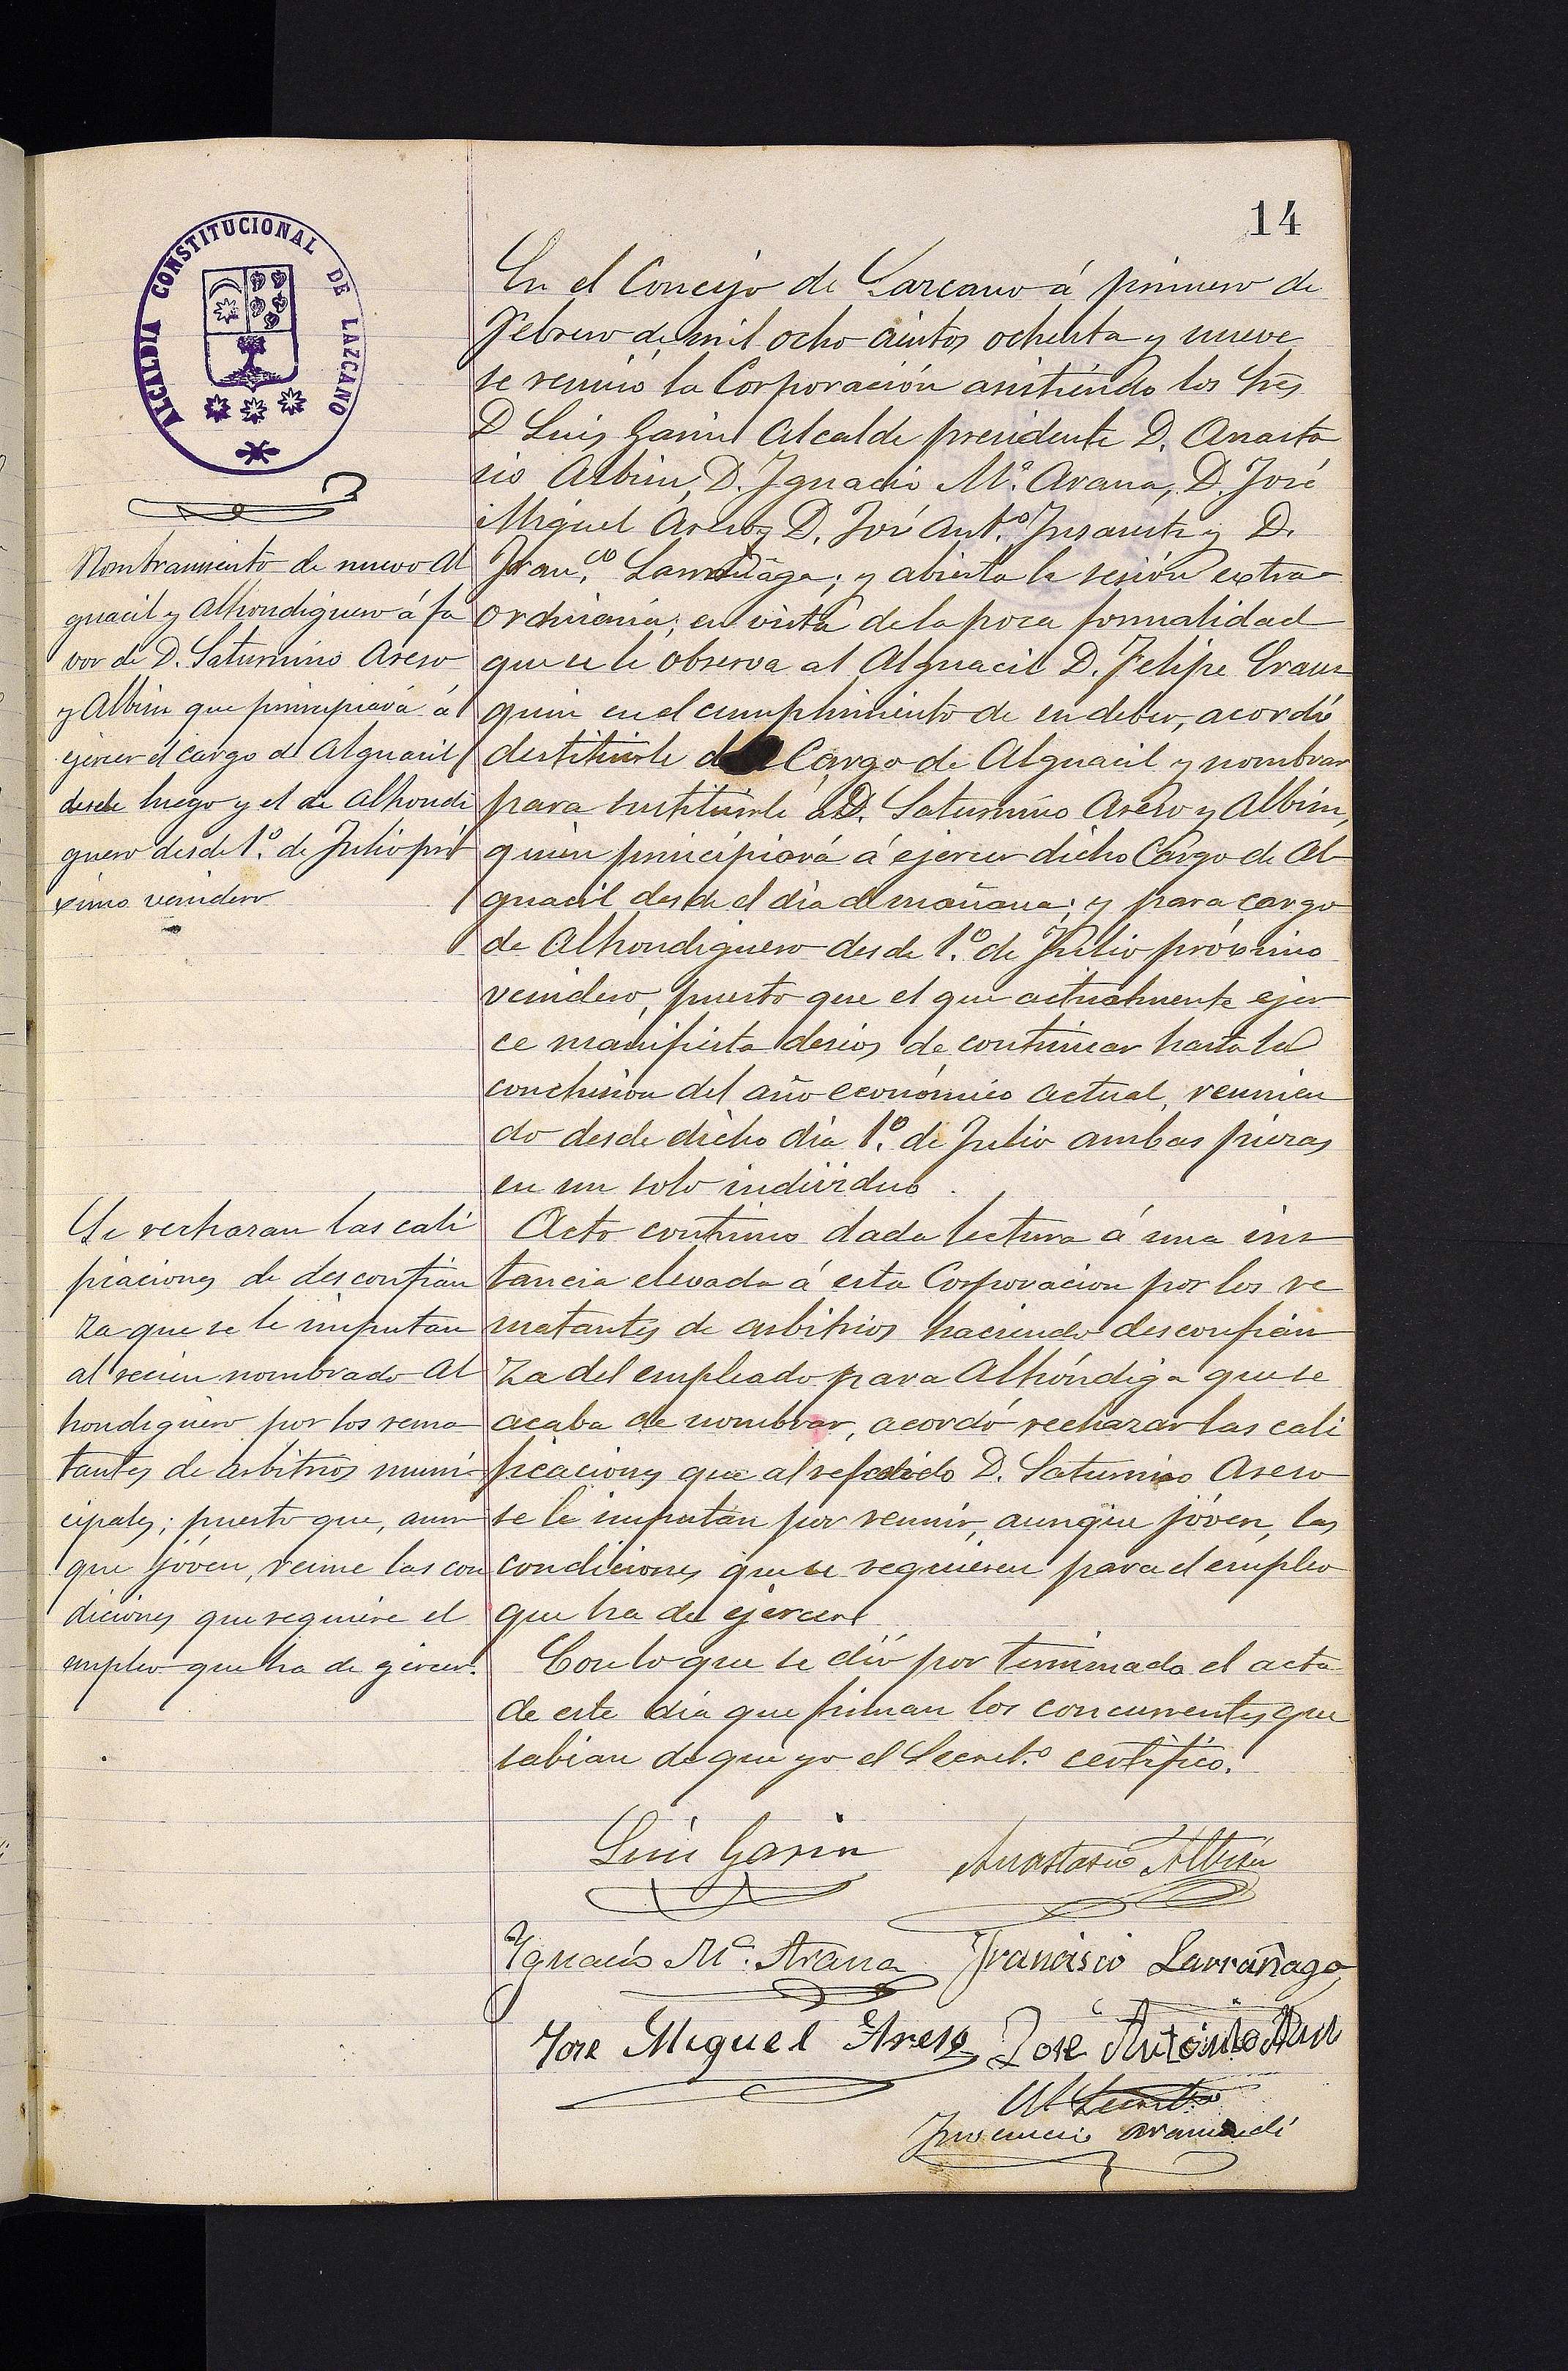 14
ALCALDIA CONSTITUCIONAL DE LAZCANO
En el Concejo de Lazcano á primero de
Febrero de mil ocho cientos ochenta y nueve
se reunió la Corporación asistiendo los Sres
D Luis Garin Alcalde presidente D. Anasta
sio Albisu, D. Ignacio Mª. Arana, D. José
Miguel Areso, D. José Antº. Insausti y D.
Franco. Larrañaga; y abierta la sesión extra-
ordinaria; en vista de la poca formalidad
que se le observa al Alguacil D. Felipe Eraus
quin en el cumplimiento de su deber, acordó
destituirle del Cargo de Alguacil y nombrar
para sustituirle á D. Saturnino Areso y Albisu,
quien principiará á ejercer dicho Cargo de Al-
guacil desde el dia de mañana; y para cargo
de Alhondiguero desde 1º. de Julio próximo
venidero, puesto que el que actualmente ejer
ce manifiesta deseos de continuar hasta la
conclusion del año económico actual, reunien
do desde dicho dia 1º. de Julio ambas piezas
en un solo individuo.
Acto continuo dada lectura á una ins
tancia elevada á esta Corporacion por los re
matantes de arbitrios haciendo desconfian
za del empleado para Alhóndiga que se
acaba de nombrar, acordó rechazar las cali
ficaciones que al referido D. Saturnino Areso
se le imputan por reunir, aunque jóven, las
condiciones que se requieren para el empleo
que ha de ejercer
Con lo que se dió por terminada el acta
de este dia que firman los concurrentes que
sabian de que yo el Secretº. certifico.
Nombramiento de nuevo Al
guacil y Alhondiguero á fa
vor de D. Saturnino Areso
y Albisu que principiará á
ejercer el cargo de Alguacil
desde luego y el de Alhondi
guero desde 1º. de Julio pró
ximo venidero
Se rechazan las cali
ficaciones de desconfian
za que se le imputan
al recien nombrado Al
hondiguero por los rema
tantes de arbitrios muni-
cipales; puesto que, aun
que jóven, reune las con
diciones que requiere el
empleo que ha de ejercer.
Luis Garin Anastasio Albisu
Ygnacio Mª. Arana Francisco Larrañaga
Jose Miguel Areso Jose Antonio
El Secretº
Inocencio Aramendi